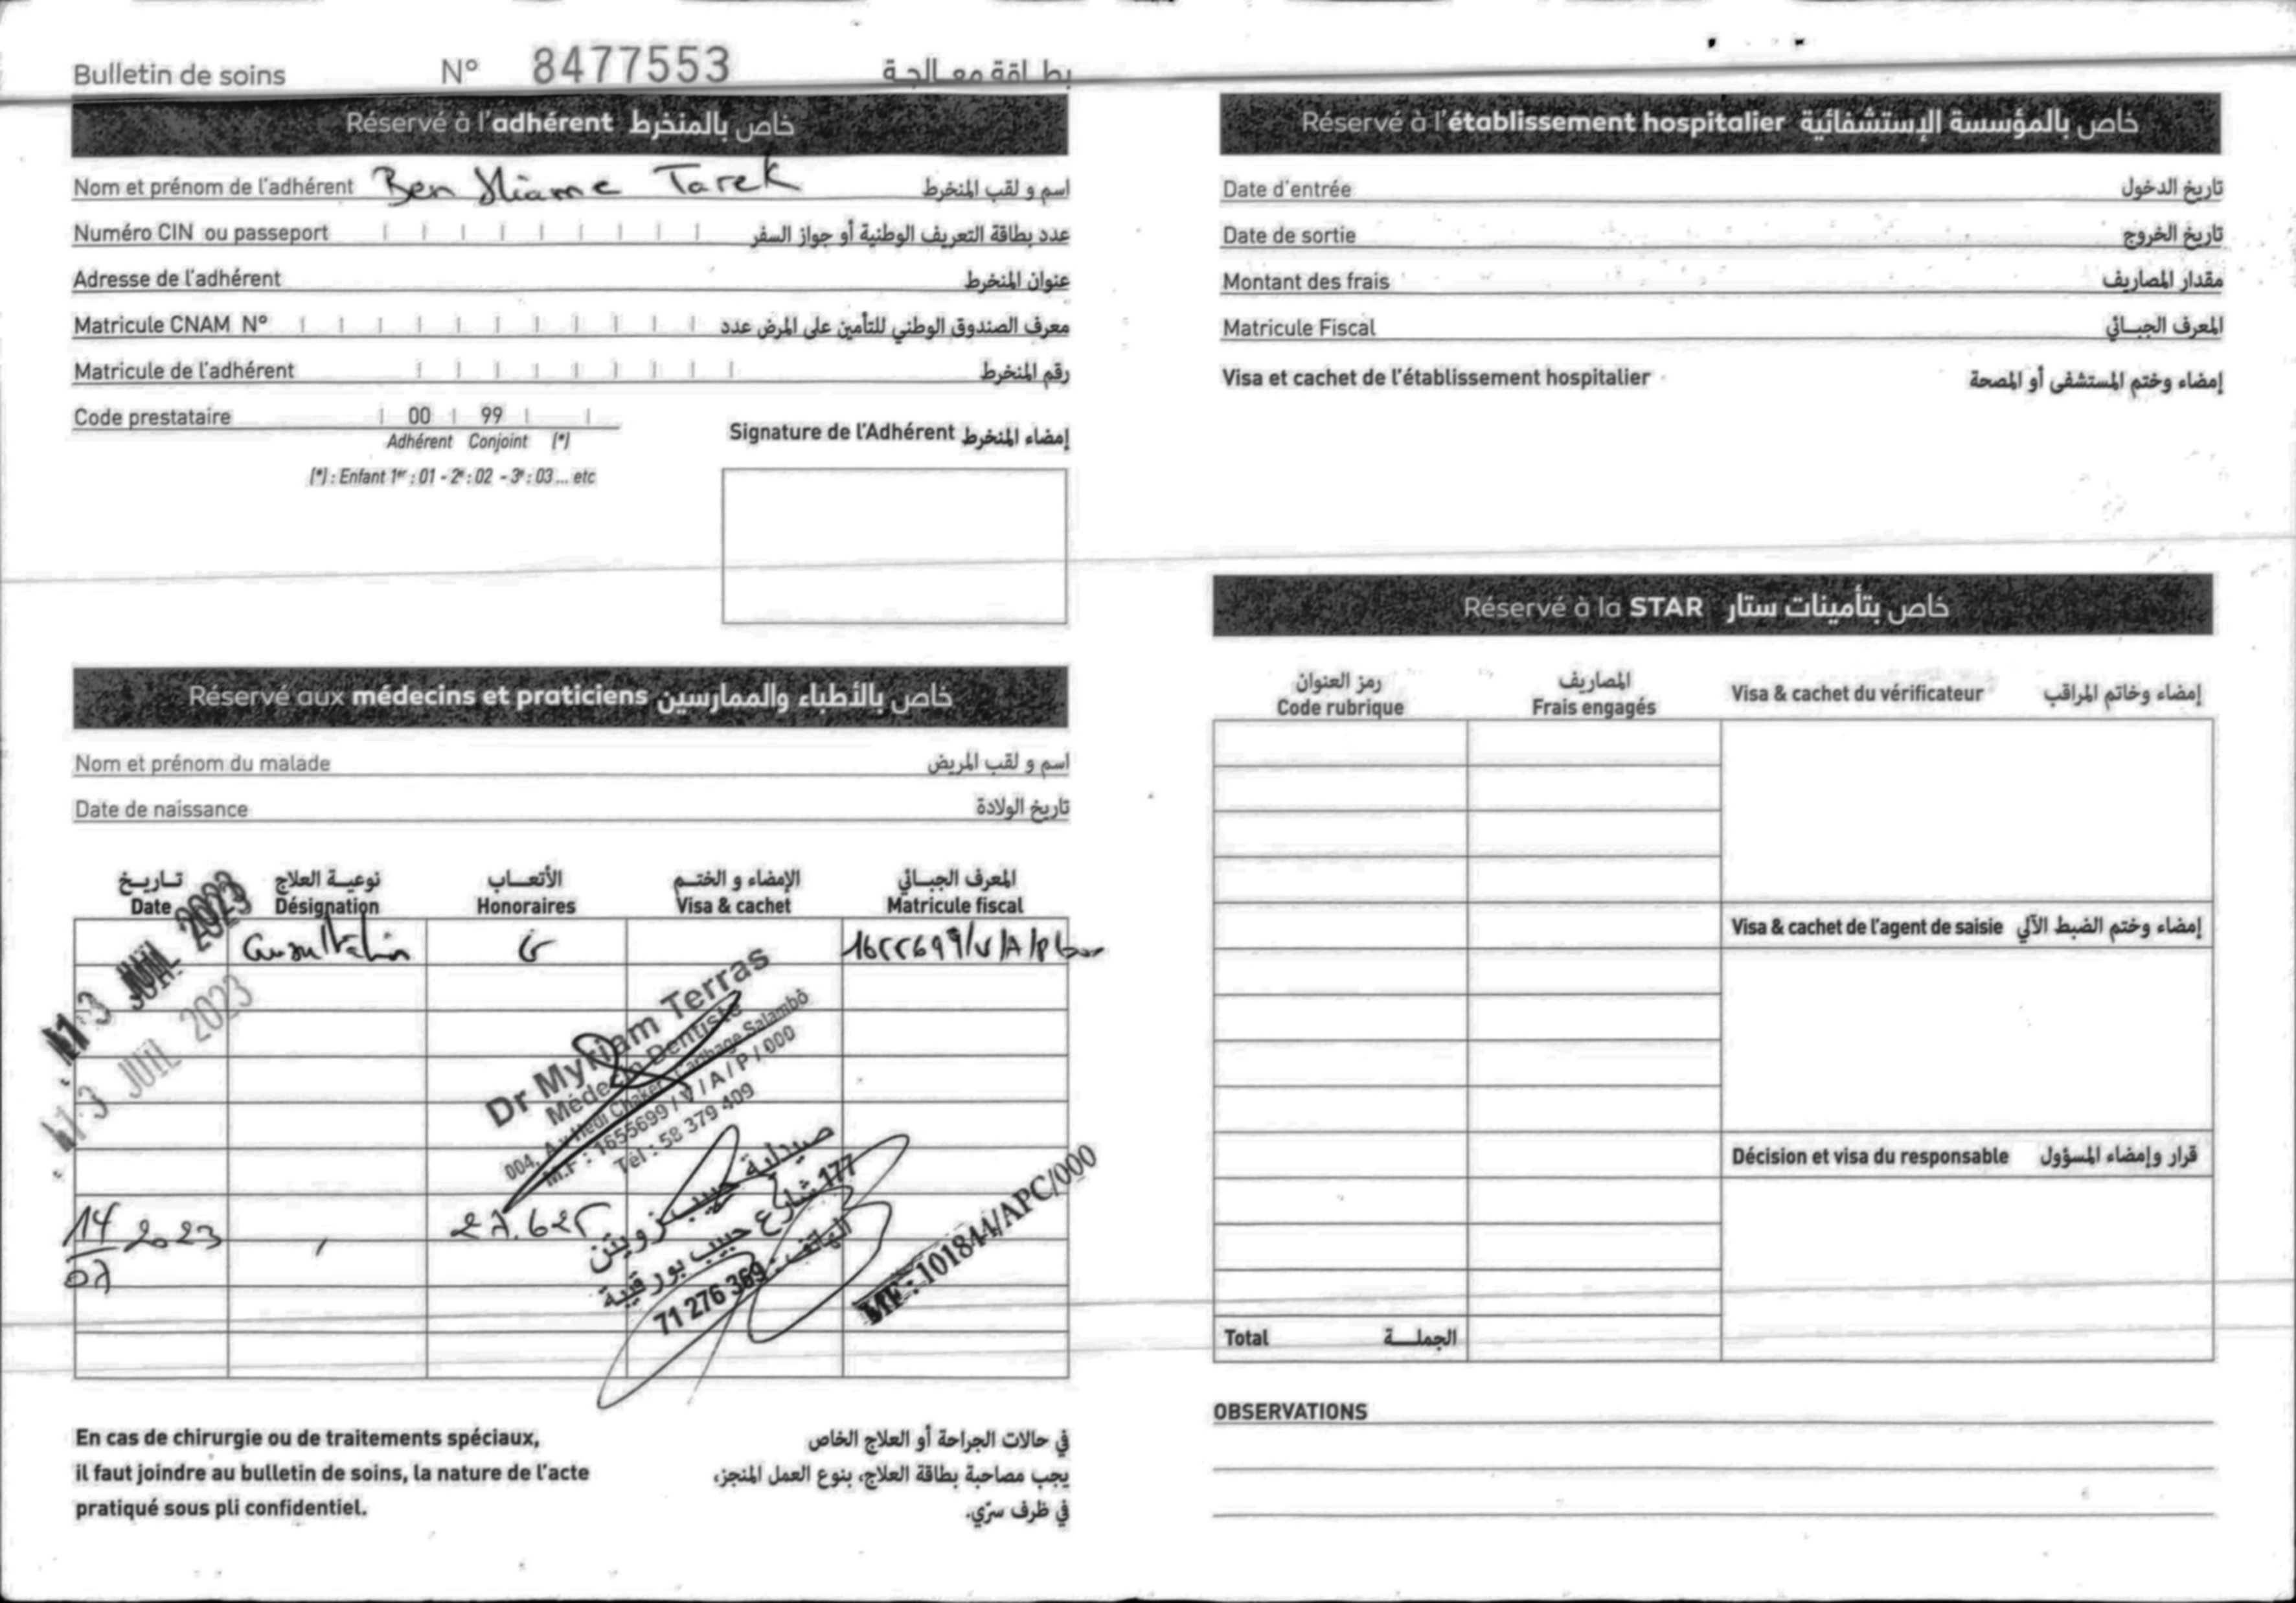 Bulletin de soins N° 8477553 بطاقة معالجة
Réservé à l'adhérent خاص بالمنخرط
Nom et prénom de l'adhérent Ben Tarek اسم و لقب المنخرط
Numéro CIN ou passeport عدد بطاقة التعريف الوطنية أو جواز السفر
Adresse de l'adhérent عنوان المنخرط
Matricule CNAM N° معرف الصندوق الوطني للتأمين على المرض عدد
Matricule de l'adhérent رقم المنخرط
Code prestataire 00 99
Adhérent Conjoint (*)
(*) : Enfant 1er : 01 - 2e : 02 - 3e : 03 ... etc
Signature de l'Adhérent إمضاء المنخرط
Réservé aux médecins et praticiens خاص بالأطباء والممارسين
Nom et prénom du malade اسم و لقب المريض
Date de naissance تاريخ الولادة
تاريخ نوعية العلاج الأتعاب الإمضاء و الختم المعرف الجبائي
Date Désignation Honoraires Visa & cachet Matricule fiscal
13 JUIL 2023
Consultation G 1655699/V/A/P
13 JUIL 2023
Dr Myriam Terras
Médecin Dentiste
004, Av Hedi Chaker, Carthage Salambô
M.F : 1655699 / V / A / P / 000
Tél : 58 379 409
14/07 2023 27.625
صيدلية حبيب زويتن
177 شارع حبيب بورقيبة
الهاتف : 71 276 369
MF: 101844/APC/000
En cas de chirurgie ou de traitements spéciaux,
il faut joindre au bulletin de soins, la nature de l'acte
pratiqué sous pli confidentiel.
في حالات الجراحة أو العلاج الخاص
يجب مصاحبة بطاقة العلاج، بنوع العمل المنجز،
في ظرف سرّي.
Réservé à l'établissement hospitalier خاص بالمؤسسة الإستشفائية
Date d'entrée تاريخ الدخول
Date de sortie تاريخ الخروج
Montant des frais مقدار المصاريف
Matricule Fiscal المعرف الجبائي
Visa et cachet de l'établissement hospitalier إمضاء وختم المستشفى أو المصحة
Réservé à la STAR خاص بتأمينات ستار
رمز العنوان المصاريف
Code rubrique Frais engagés Visa & cachet du vérificateur إمضاء وخاتم المراقب
Visa & cachet de l'agent de saisie إمضاء وختم الضبط الآلي
Décision et visa du responsable قرار وإمضاء المسؤول
Total الجملة
OBSERVATIONS